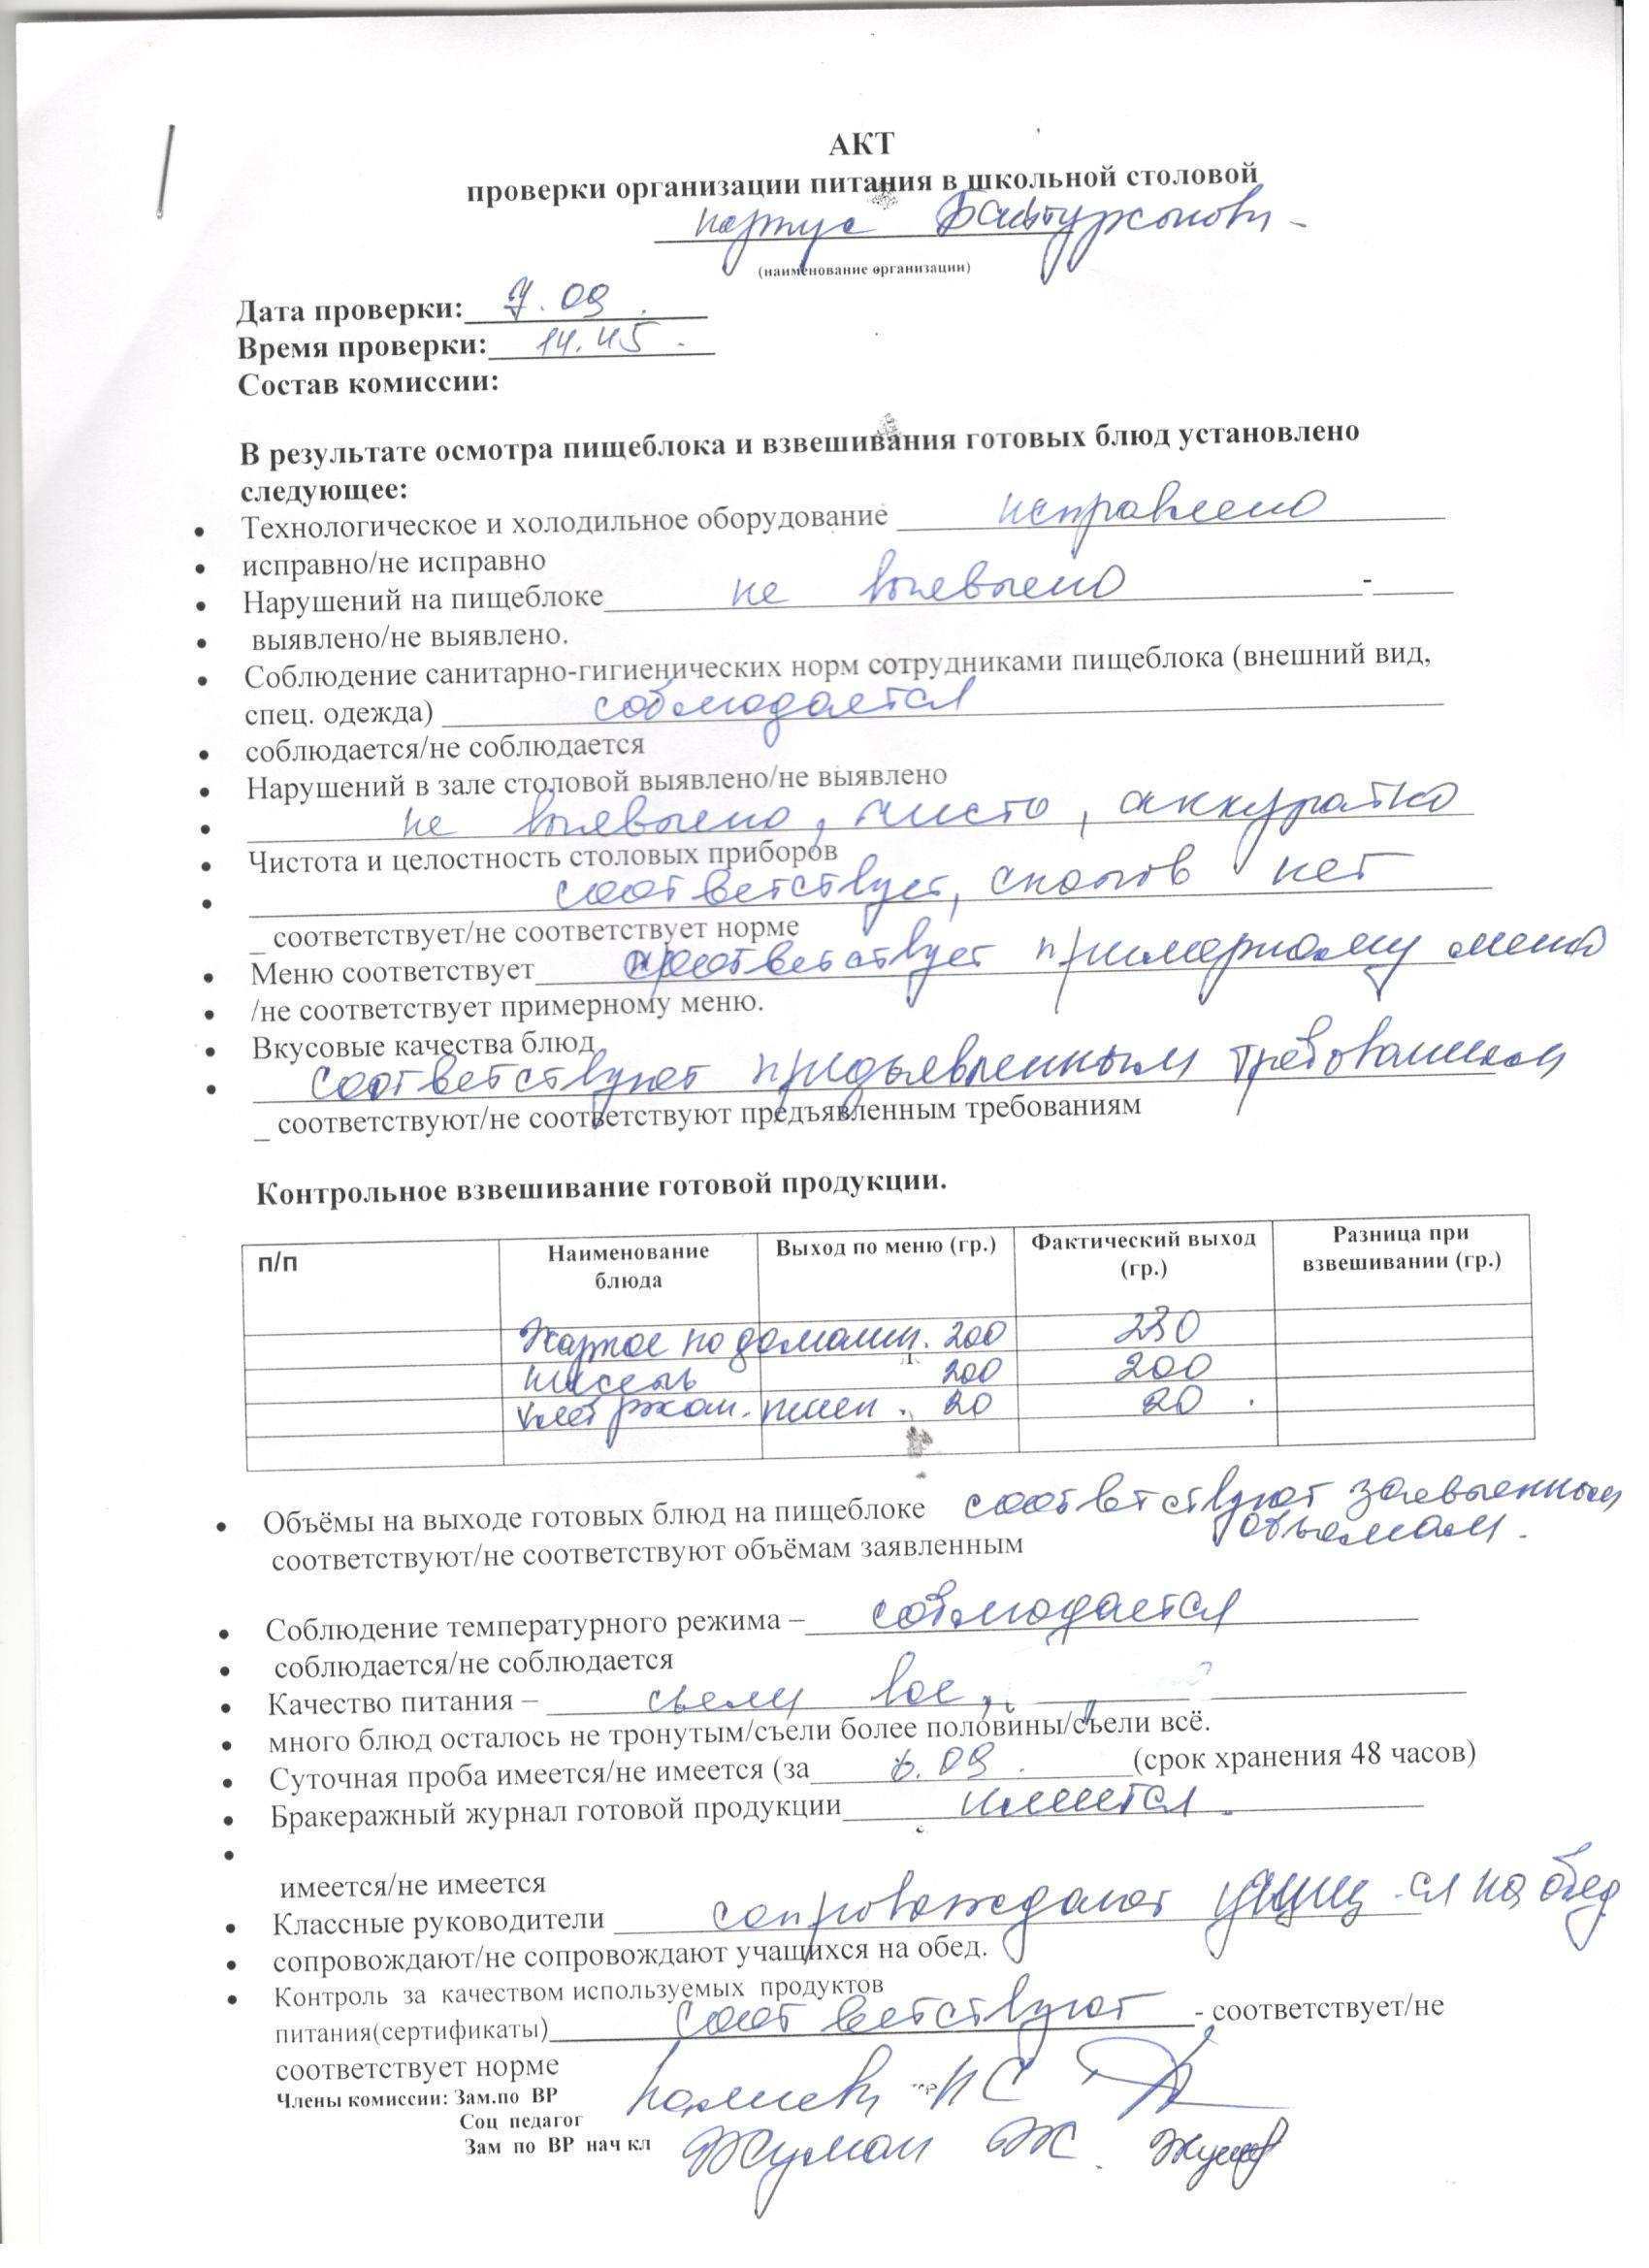 АКТ
проверки организации питания в школьной столовой
корпус
(наименование организации)
Дата проверки: 7.09.
Время проверки: 14.45.
Состав комиссии:
В результате осмотра пищеблока и взвешивания готовых блюд установлено
следующее:
• Технологическое и холодильное оборудование
• исправно/не исправно
• Нарушений на пищеблоке не выявлено -
• выявлено/не выявлено.
• Соблюдение санитарно-гигиенических норм сотрудниками пищеблока (внешний вид,
спец. одежда) соблюдается
• соблюдается/не соблюдается
• Нарушений в зале столовой выявлено/не выявлено
• не выявлено, чисто, аккуратно
• Чистота и целостность столовых приборов
• соответствует, сколов нет
_ соответствует/не соответствует норме
• Меню соответствует соответствует примерному меню
• /не соответствует примерному меню.
• Вкусовые качества блюд
• соответствуют предъявленным требованиям
_ соответствуют/не соответствуют предъявленным требованиям
Контрольное взвешивание готовой продукции.
п/п Наименование блюда Выход по меню (гр.) Фактический выход (гр.) Разница при взвешивании (гр.)
Жаркое по домашн. 200 230
Кисель 200 200
Хлеб ржан. пшен. 20 20.
• Объёмы на выходе готовых блюд на пищеблоке соответствуют заявленным
объемам.
соответствуют/не соответствуют объёмам заявленным
• Соблюдение температурного режима – соблюдается
• соблюдается/не соблюдается
• Качество питания – съели все,
• много блюд осталось не тронутым/съели более половины/съели всё.
• Суточная проба имеется/не имеется (за 6.09. (срок хранения 48 часов)
• Бракеражный журнал готовой продукции имеется.
•
имеется/не имеется
• Классные руководители сопровождают на обед
• сопровождают/не сопровождают учащихся на обед.
• Контроль за качеством используемых продуктов
питания(сертификаты) соответствуют - соответствует/не
соответствует норме
Члены комиссии: Зам.по ВР
Соц педагог
Зам по ВР нач кл